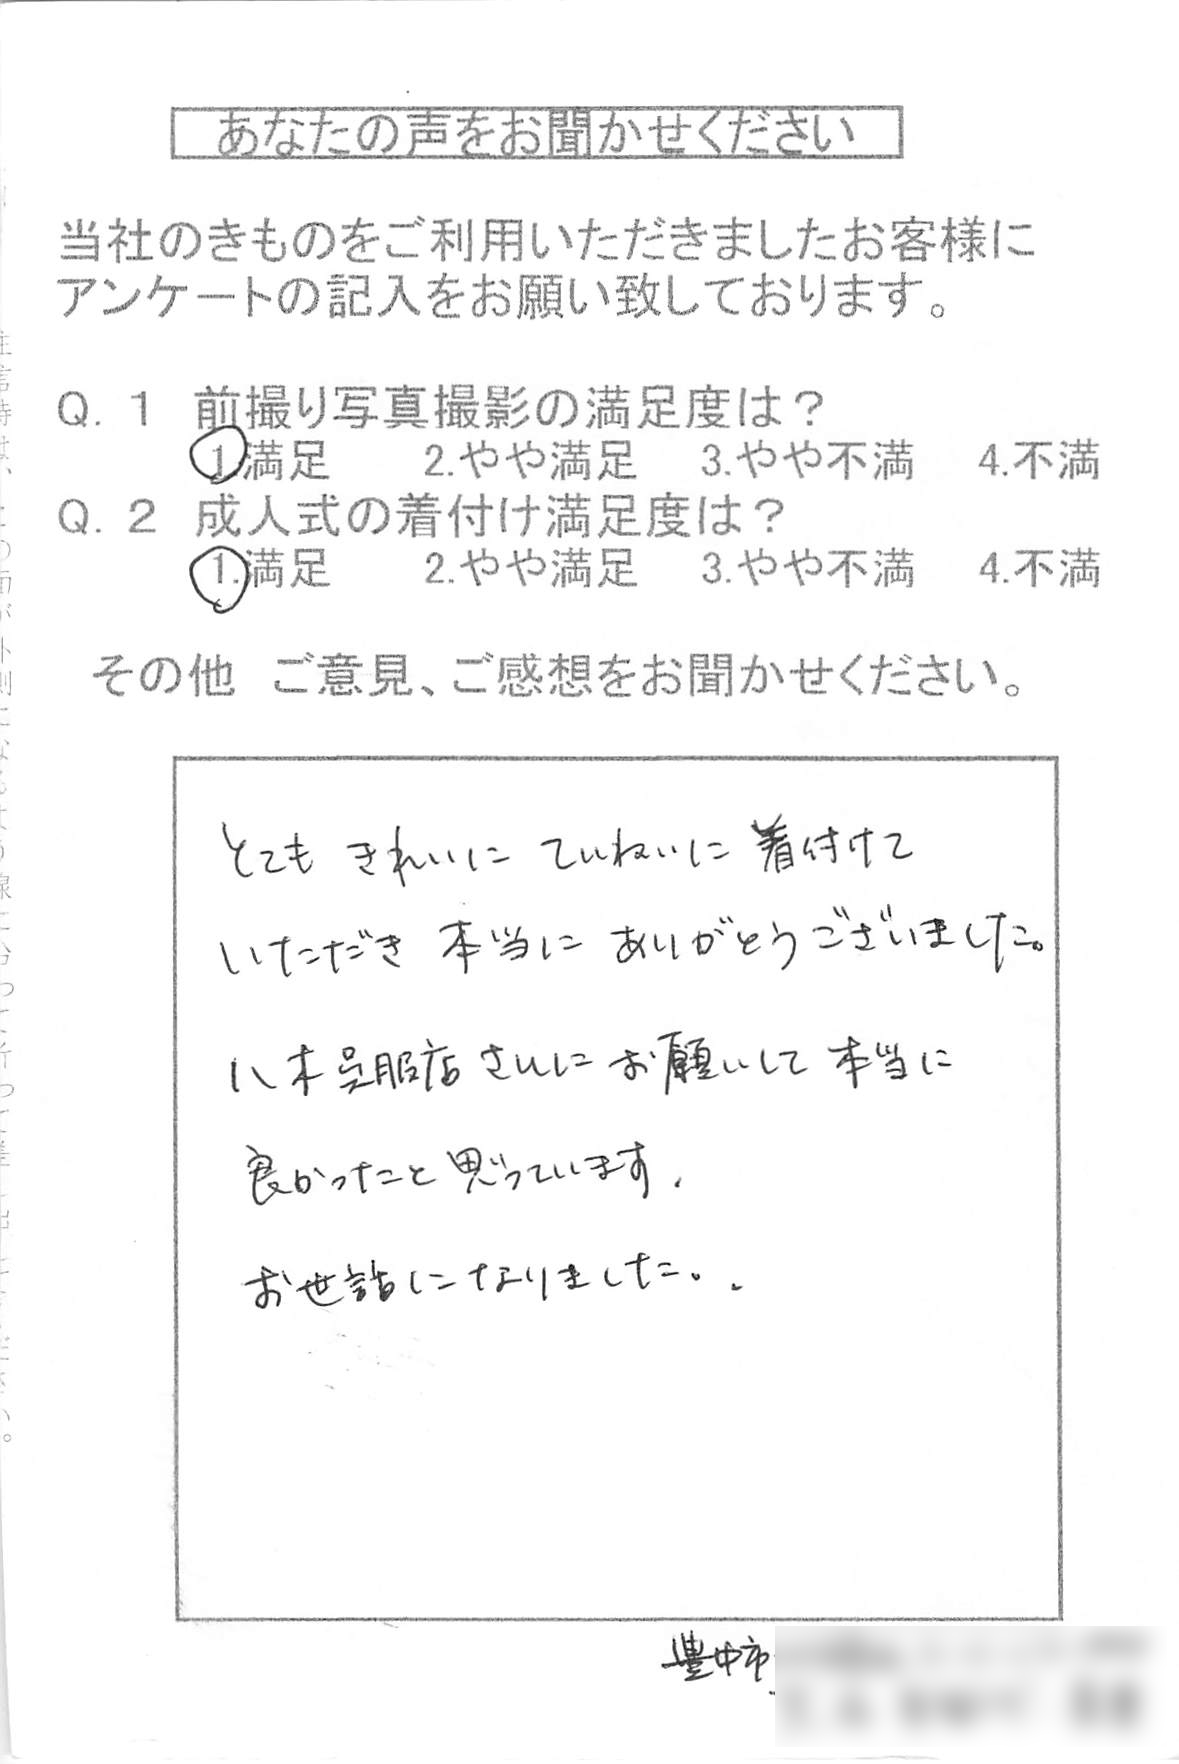 あなたの声をお聞かせください
当社のきものをご利用いただきましたお客様に
アンケートの記入をお願い致しております。
Q.1 前撮り写真撮影の満足度は?
1.満足 2.やや満足 3.やや不満 4.不満
Q.2 成人式の着付け満足度は?
1.満足 2.やや満足 3.やや不満 4.不満
その他 ご意見、ご感想をお聞かせください。
とても きれいに ていねいに 着付けて
いただき 本当に ありがとうございました。
八木呉服店さんに お願いして 本当に
良かったと思っています.
お世話になりました。.
豊中市